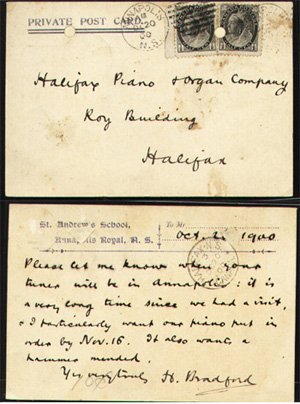 PRIVATE POST CARD.
ANNAPOLIS
20
N.S.
Halifax Piano & Organ Company
Roy Building
Halifax
St. Andrew's School,
Annapolis Royal, N. S.
To Mr
Oct. 2 1900
Please let me know when your
tuner will be in Annapolis: it is
a very long time since we had a visit,
& I particularly want our piano put in
order by Nov. 16. It also wants a
hammer mended.
Yrs very truly H. Bradford